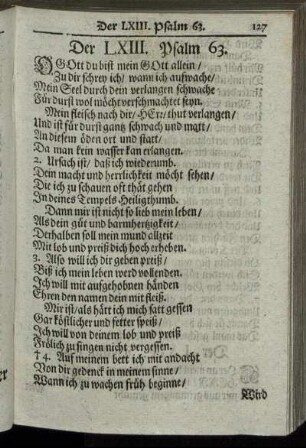 Der LXIII. Psalm 63. 127
Der LXIII. Psalm 63.
O GOtt du bist mein GOtt allein /
Zu dir schrey ich / wann ich aufwache /
Mein Seel durch dein verlangen schwache
Für durst wol möcht verschmachtet seyn.
Mein fleisch nach dir / HErr / thut verlangen /
Und ist für durst gantz schwach und matt /
An diesem öden ort und statt /
Da man kein wasser kan erlangen.
2. Ursach ist / daß ich wiederumb.
Dein macht und herrlichkeit möcht sehen /
Die ich zu schauen oft thät gehen
In deines Tempels Heiligthumb.
Dann mir ist nicht so lieb mein leben /
Als dein güt und barmhertzigkeit /
Derhalben soll mein mund allzeit
Mit lob und preiß dich hoch erheben.
3. Also will ich dir geben preiß /
Biß ich mein leben werd vollenden.
Ich will mit aufgehobnen händen
Ehren den namen dein mit fleiß.
Mir ist / als hätt ich mich satt gessen
Gar köstlicher und fetter speiß /
Ich will von deinem lob und preiß
Frölich zu singen nicht vergessen.
† 4. Auf meinem bett ich mit andacht
Von dir gedenck in meinem sinne /
Wann ich zu wachen früh beginne /
Wird